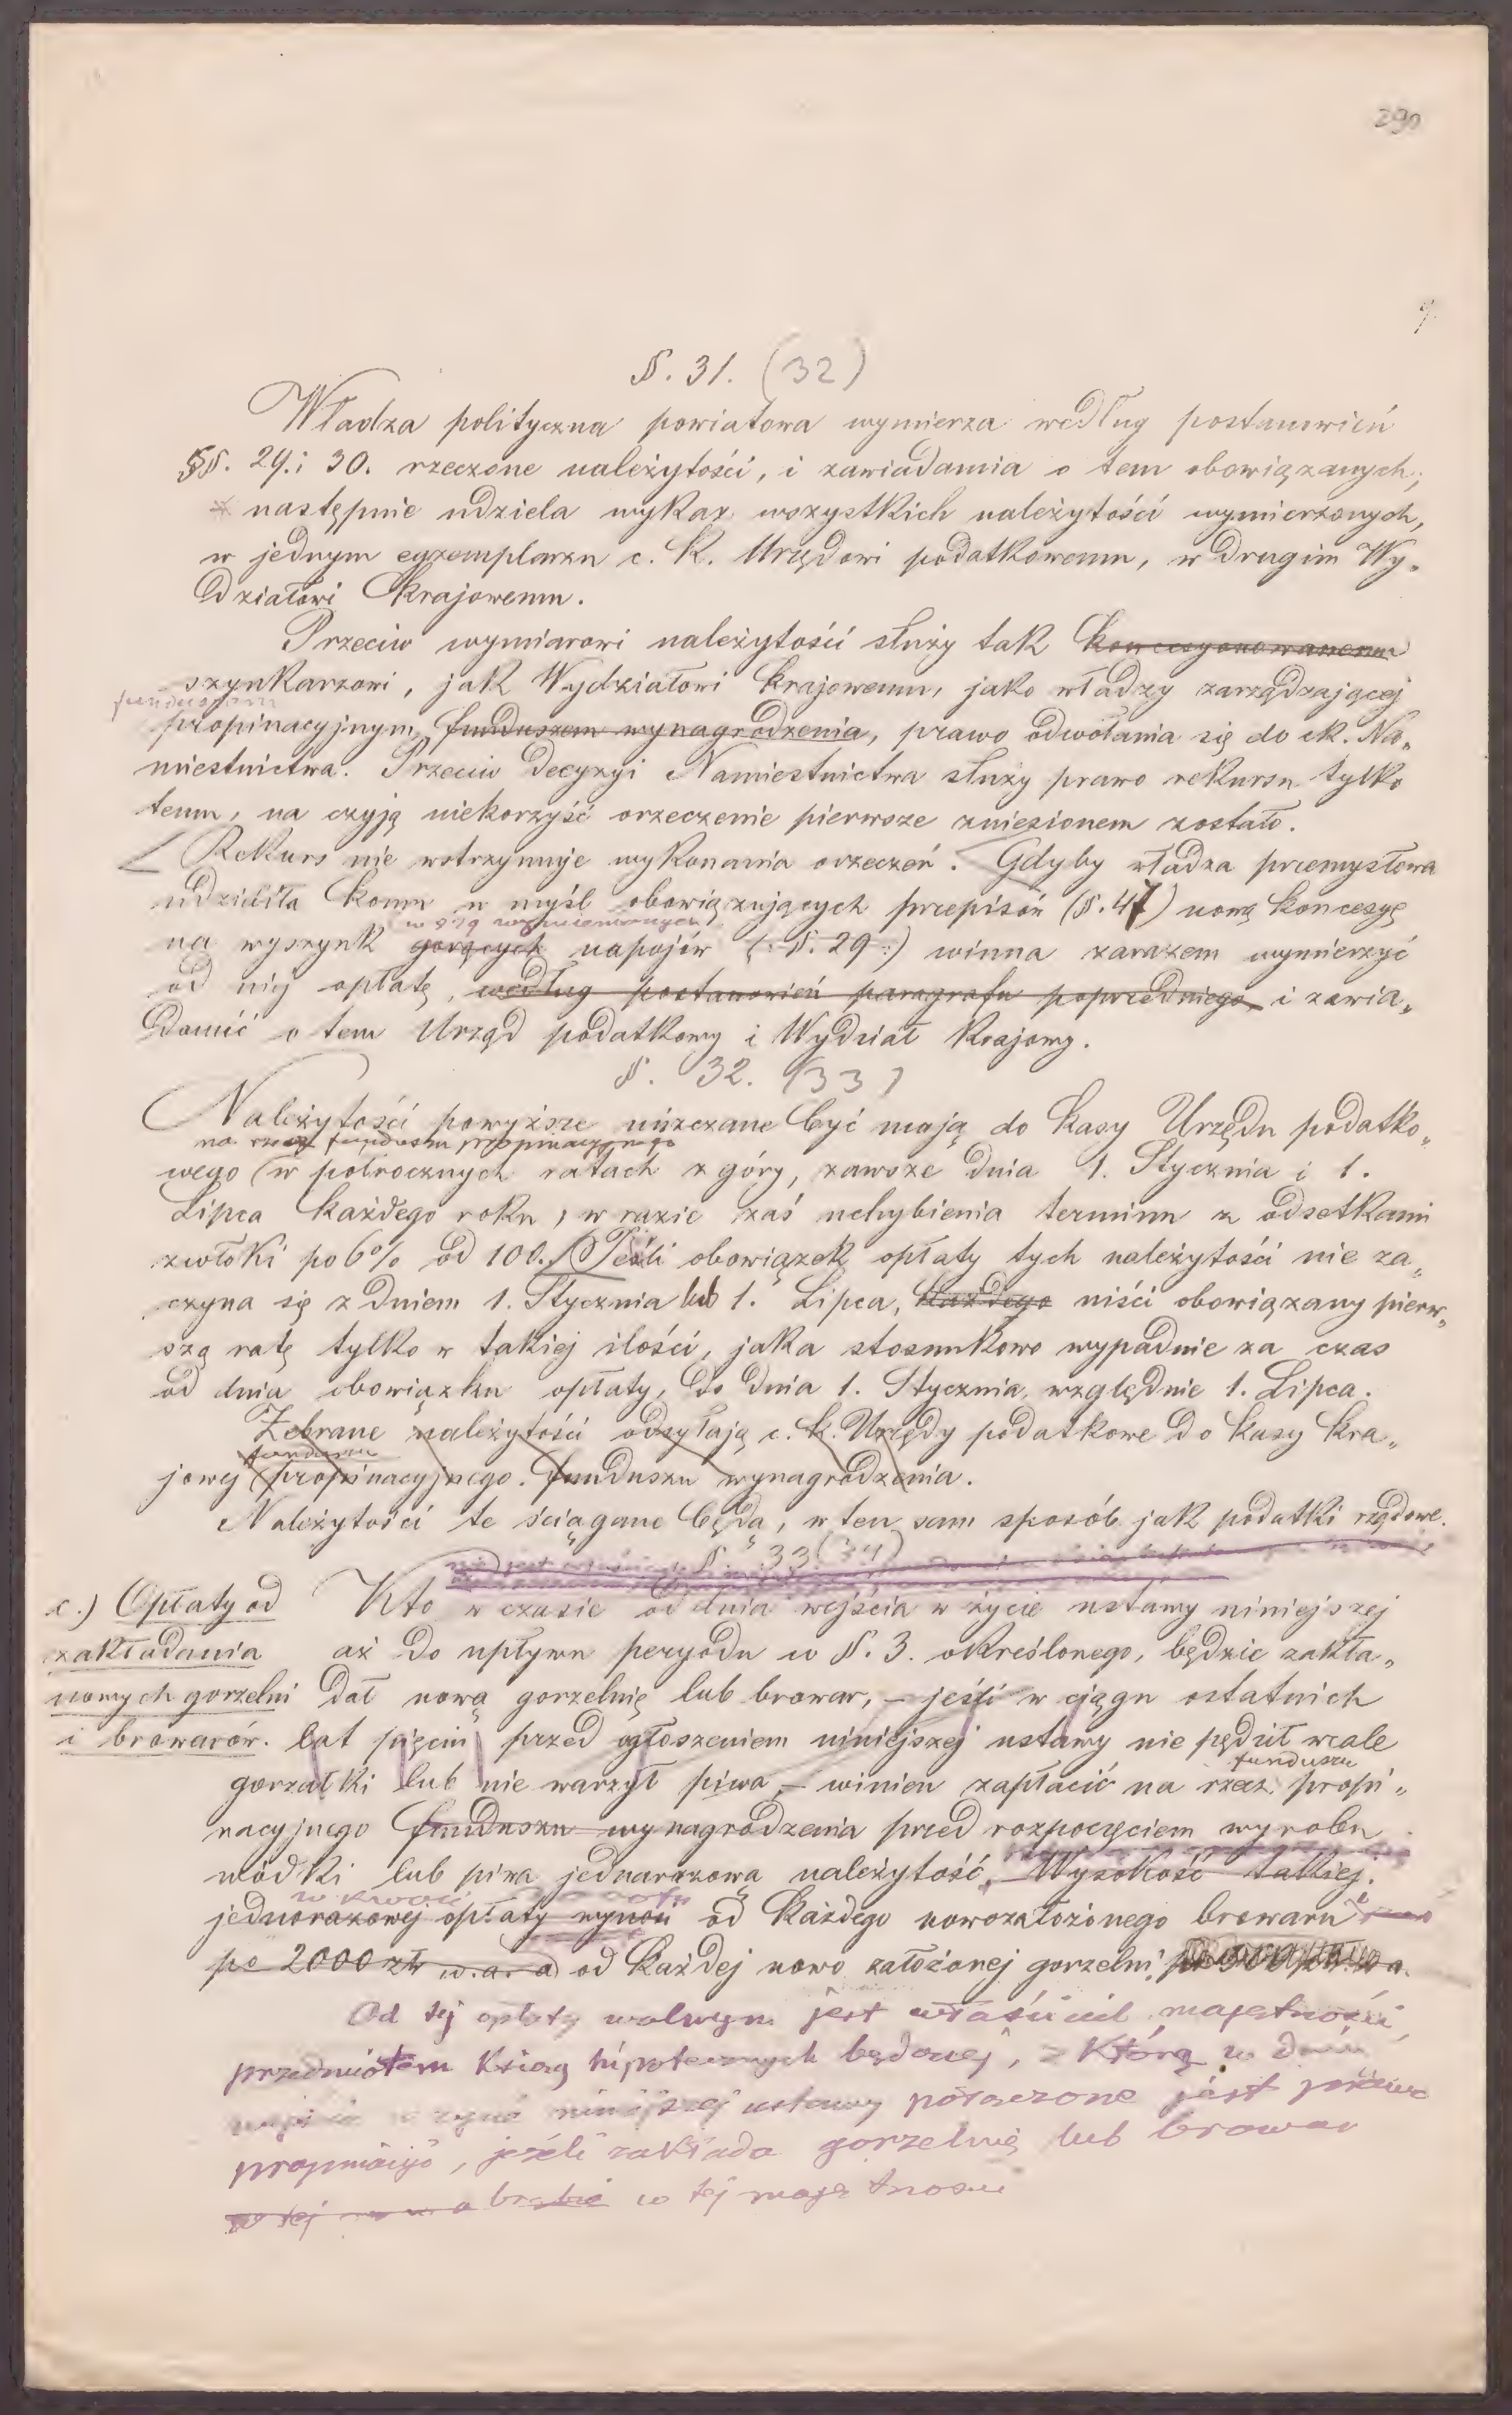 290
9.
§. 31. (32)
Władza polityczna powiatowa wymierza według postanowień
§§. 29. i 30. rzeczone należytości, i zawiadamia o tem obowiązanych;
następnie udziela wykaz wszystkich należytości wymierzonych,
w jednym egzemplarzu c. k. Urzędowi podatkowemu, w drugim Wy„
działowi krajowemu.
Przeciw wymiarowi należytości służy tak koncesyonowanemu
szynkarzowi, jak Wydziałowi krajowemu, jako władzy zarządzającej
funduszem
propinacyjnym, funduszem wynagrodzenia, prawo odwołania się do ck. Na„
miestnictwa. Przeciw decyzyi Namiestnictwa służy prawo rekursu tylko
temu, na czyją niekorzyść orzeczenie pierwsze zniesionem zostało.
Rekurs nie wstrzymuje wykonania orzeczeń. Gdyby władza przemysłowa
udzieliła komu w myśl obowiązujących przepisów (§. 47) nową koncesyę
w §29 wymienionych
na wyszynk gorących napojów (: §. 29 :) winna zarazem wymierzyć
od niej opłatę, według postanowień paragrafu poprzedniego i zawia„
domić o tem Urząd podatkowy i Wydział krajowy.
§. 32. (33)
Należytości powyższe uiszczane być mają do kasy Urzędu podatko„
na rzecz funduszu propinacyjnego
wego w półrocznych ratach z góry, zawsze dnia 1. Stycznia i 1.
Lipca każdego roku, w razie zaś uchybienia terminu z odsetkami
zwłoki po 6% od 100. Jeśli obowiązek opłaty tych należytości nie za„
czyna się z dniem 1. Stycznia lub 1. Lipca, każdego uiści obowiązany pierw„
szą ratę tylko w takiej ilości, jaka stosunkowo wypadnie za czas
od dnia obowiązku opłaty, do dnia 1. Stycznia, względnie 1. Lipca.
Zebrane należytości odsyłają c. k. Urzędy podatkowe do kasy kra„
funduszu
jowej propinacyjnego. funduszu wynagrodzenia.
Należytości te ściągane będą, w ten sam sposób jak podatki rządowe.
§. 33 (34)
c.) Opłaty od
zakładania
nowych gorzelni
i browarów.
Kto w czasie od dnia wejścia w życie ustawy niniejszej
aż do upływu peryodu w §. 3. określonego, będzie zakła„
dał nową gorzelnię lub browar, – jeśli w ciągu ostatnich
lat pięciu przed ogłoszeniem niniejszej ustawy nie pędził wcale
funduszu
gorzałki lub nie warzył piwa – winien zapłacić na rzecz propi„
nacyjnego funduszu wynagrodzenia przed rozpoczęciem wyrobu
wódki lub piwa jednorazową należytość. Wysokość takiej
w kwocie
jednorazowej opłaty wynosi od każdego nowozałożonego browaru
po 2000 zł w. a. a od każdej nowo założonej gorzelni
Od tej opłaty wolnym jest właściciel majętności
przedmiotem Ksiąg hipotecznych będącej, z którą w dniu
wejścia w życie niniejszej ustawy połączone jest prawo
propinacyi, jeżeli zakłada gorzelnię lub browar
w tej obrębie w tej majętności